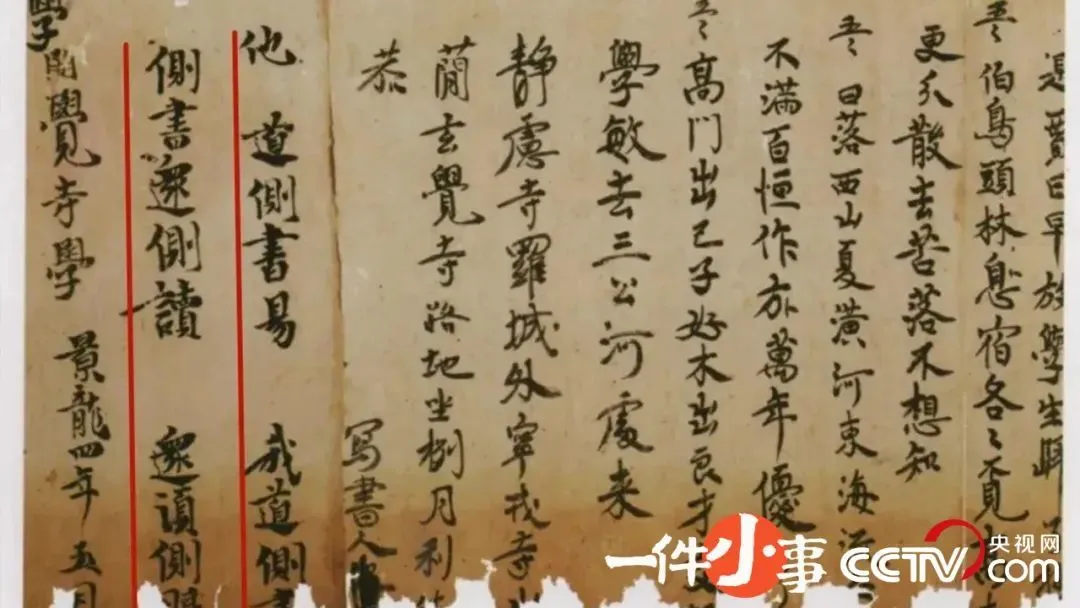 是賈日早放學生歸
五言 伯鳥頭林息宿各々覓
更分散去苦落不想知
五言 日落西山夏潢河東海流
不滿百恒作萬年優
五言 高門出己子好木出良才交
學敏去三公河處來
靜慮寺羅城外寧戎寺
蘭玄覺寺路地坐例月利
恭 写書人
他道側書易 我道側書
側書還側讀 還須側眼
學開覺寺學 景龍四年五月
一件小事 CCTV.com 央视网